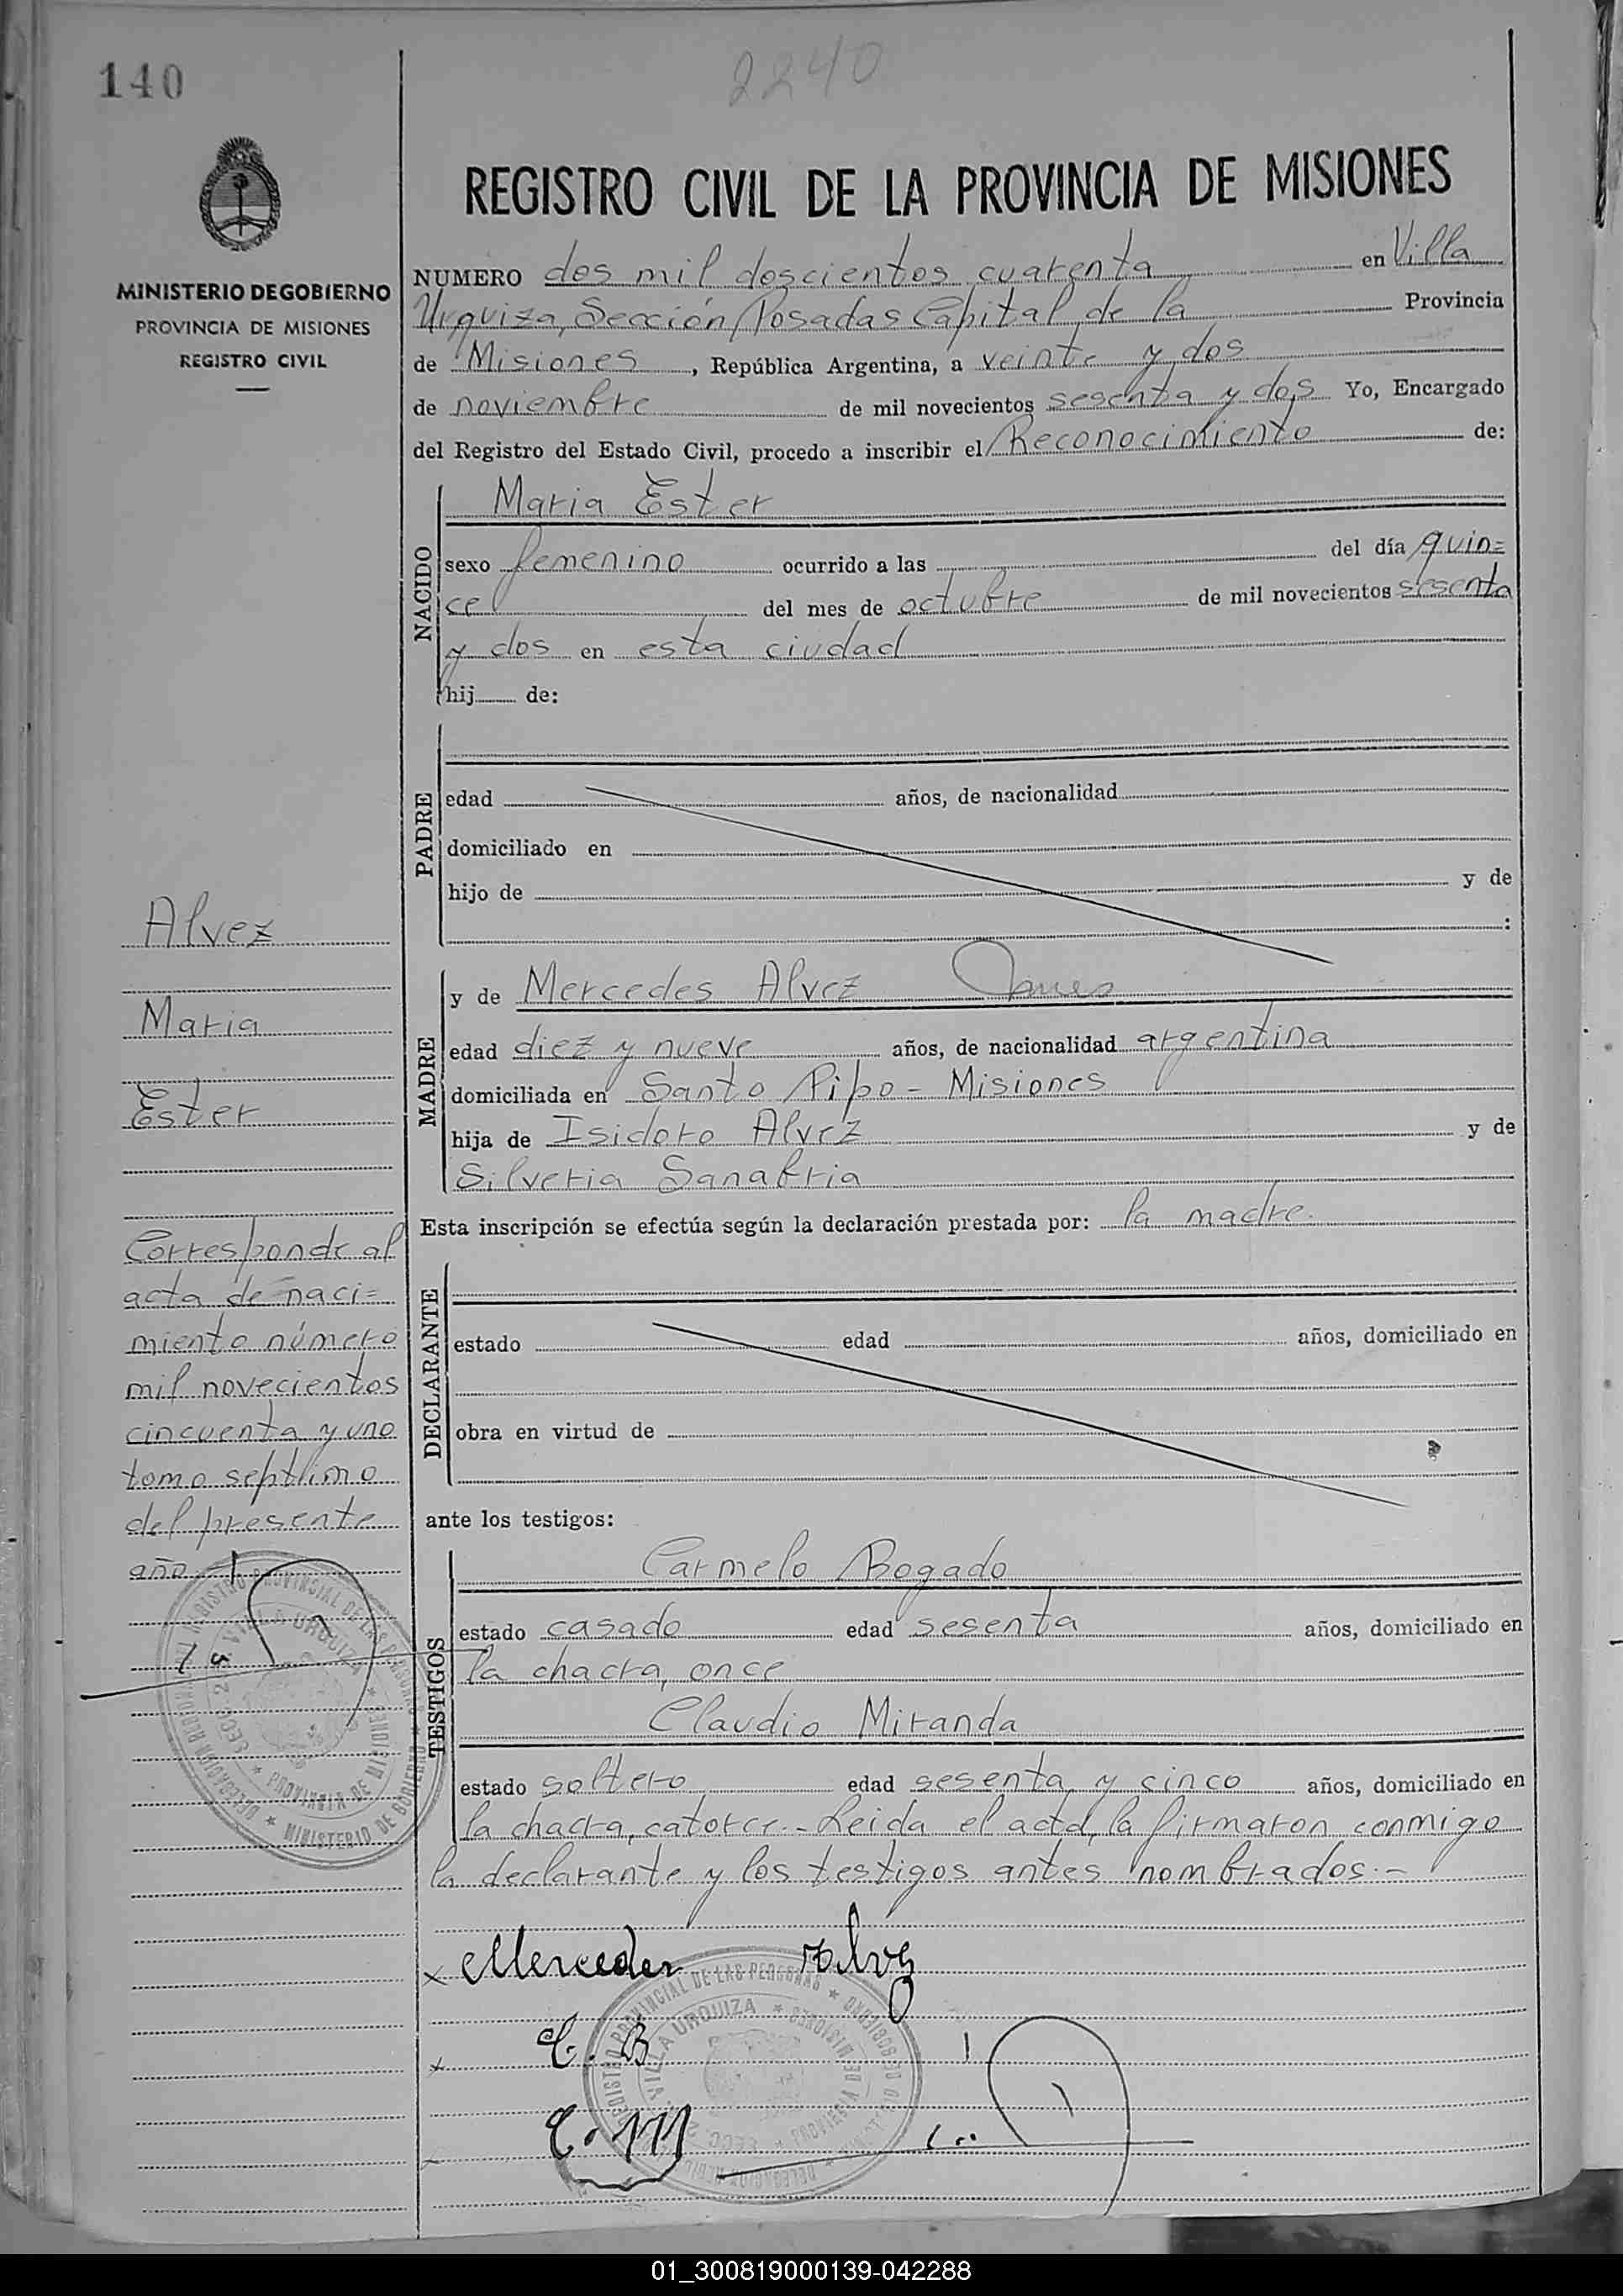 140
2240
MINISTERIO DE GOBIERNO
PROVINCIA DE MISIONES
REGISTRO CIVIL
REGISTRO CIVIL DE LA PROVINCIA DE MISIONES
NUMERO dos mil doscientos cuarenta en Villa
Urquiza, Sección Posadas Capital de la Provincia
de Misiones, República Argentina, a veinte y dos
de noviembre de mil novecientos sesenta y dos Yo, Encargado
del Registro del Estado Civil, procedo a inscribir el Reconocimiento de:
NACIDO
Maria Ester
sexo femenino ocurrido a las del día quin=
ce del mes de octubre de mil novecientos sesenta
y dos en esta ciudad
hij de:
PADRE
edad años, de nacionalidad
domiciliado en
hijo de y de
:
MADRE
y de Mercedes Alvez
edad diez y nueve años, de nacionalidad argentina
domiciliada en Santo Pipo - Misiones
hija de Isidoro Alvez y de
Silveria Sanabria
Esta inscripción se efectúa según la declaración prestada por: la madre.
DECLARANTE
estado edad años, domiciliado en
obra en virtud de
ante los testigos:
TESTIGOS
Carmelo Bogado
estado casado edad sesenta años, domiciliado en
la chacra once
Claudio Miranda
estado soltero edad sesenta y cinco años, domiciliado en
la chacra, catorce.- Leida el acta, la firmaron conmigo
la declarante y los testigos antes nombrados.-
x Mercedes Alvez
x C. B
C. M
Alvez
Maria
Ester
Corresponde al
acta de naci=
miento número
mil novecientos
cincuenta y uno
tomo septimo
del presente
año
REGISTRO PROVINCIAL DE LAS PERSONAS
VILLA URQUIZA
PROVINCIA DE MISIONES
MINISTERIO DE GOBIERNO
REGISTRO PROVINCIAL DE LAS PERSONAS
VILLA URQUIZA
PROVINCIA DE MISIONES
01_300819000139-042288